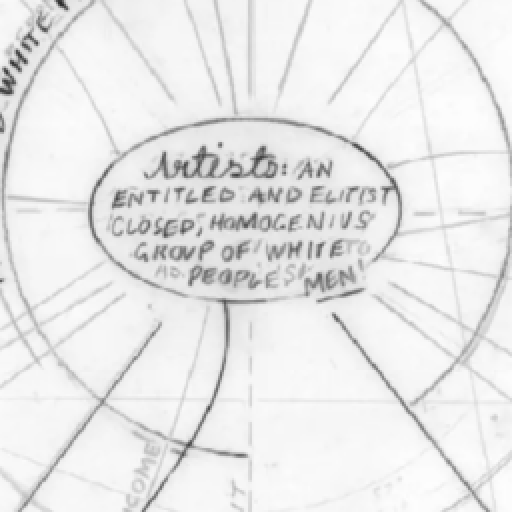 WHITE
Artists: AN
ENTITLED AND ELITIST
CLOSED, HOMOGENIUS
GROUP OF WHITE
PEOPLES MEN!
COME